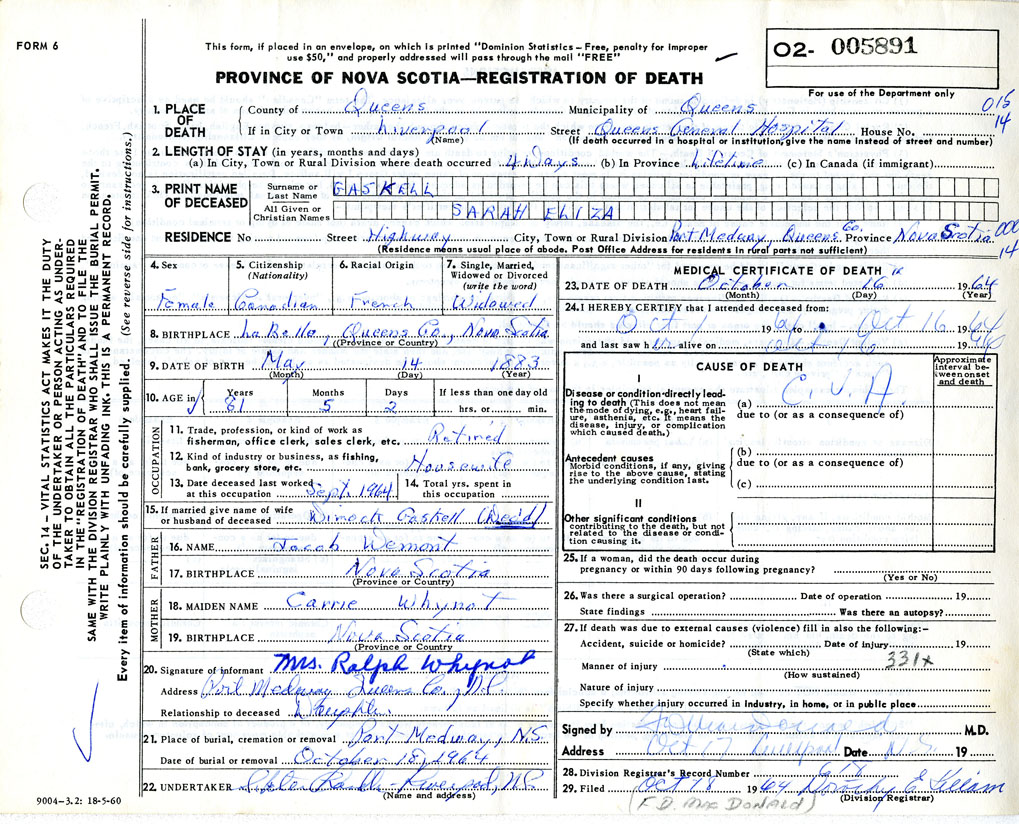 FORM 6
This form, if placed in an envelope, on which is printed "Dominion Statistics—Free, penalty for improper
use $50," and properly addressed will pass through the mail "FREE"
PROVINCE OF NOVA SCOTIA—REGISTRATION OF DEATH
02- 005891
For use of the Department only
015
14
SEC. 14 – VITAL STATISTICS ACT MAKES IT THE DUTY
OF THE UNDERTAKER OR PERSON ACTING AS UNDER-
TAKER TO OBTAIN ALL THE PARTICULARS REQUIRED
IN THE "REGISTRATION OF DEATH" AND TO FILE THE
SAME WITH THE DIVISION REGISTRAR WHO SHALL ISSUE THE BURIAL PERMIT.
WRITE PLAINLY WITH UNFADING INK. THIS IS A PERMANENT RECORD.
Every item of information should be carefully supplied. (See reverse side for instructions.)
1. PLACE OF DEATH
County of Queens Municipality of Queens
If in City or Town Liverpool Street Queens General Hospital House No.
(Name) (If death occurred in a hospital or institution, give the name instead of street and number)
2. LENGTH OF STAY (in years, months and days)
(a) In City, Town or Rural Division where death occurred 4 Days (b) In Province Lifetime (c) In Canada (if immigrant)
3. PRINT NAME OF DECEASED
Surname or Last Name GASKELL
All Given or Christian Names SARAH ELIZA
RESIDENCE No Street Highway City, Town or Rural Division Port Medway Queens Co. Province Nova Scotia
000
14
(Residence means usual place of abode. Post Office Address for residents in rural parts not sufficient)
4. Sex Female
5. Citizenship (Nationality) Canadian
6. Racial Origin French
7. Single, Married, Widowed or Divorced (write the word) Widowed
8. BIRTHPLACE LaBelle, Queens Co., Nova Scotia
(Province or Country)
9. DATE OF BIRTH May 14 1883
(Month) (Day) (Year)
10. AGE in Years 81 Months 5 Days 2 If less than one day old
hrs. or min.
OCCUPATION
11. Trade, profession, or kind of work as
fisherman, office clerk, sales clerk, etc. Retired
12. Kind of industry or business, as fishing,
bank, grocery store, etc. Housewife
13. Date deceased last worked
at this occupation Sept. 1964
14. Total yrs. spent in
this occupation
15. If married give name of wife
or husband of deceased Dimock Gaskell (Dec'd)
FATHER
16. NAME Jacob Wemont
17. BIRTHPLACE Nova Scotia
(Province or Country)
MOTHER
18. MAIDEN NAME Carrie Whynot
19. BIRTHPLACE Nova Scotia
(Province or Country)
20. Signature of informant Mrs. Ralph Whynot
Address Port Medway Queens Co., N.S.
Relationship to deceased Daughter
21. Place of burial, cremation or removal Port Medway, N.S.
Date of burial or removal October 18, 1964
22. UNDERTAKER Liverpool, N.S.
(Name and address)
9004–3.2: 18-5-60
MEDICAL CERTIFICATE OF DEATH
23. DATE OF DEATH October 16 1964
(Month) (Day) (Year)
24. I HEREBY CERTIFY that I attended deceased from:
Oct 1 1964 to Oct 16 1964
and last saw her alive on Oct 16 1964
CAUSE OF DEATH
Approximate interval between onset and death
I
Disease or condition directly lead-
ing to death (This does not mean
the mode of dying, e.g., heart fail-
ure, asthenia, etc. It means the
disease, injury, or complication
which caused death.)
(a) C.V.A.
due to (or as a consequence of)
Antecedent causes
Morbid conditions, if any, giving
rise to the above cause, stating
the underlying condition last.
(b)
due to (or as a consequence of)
(c)
II
Other significant conditions
contributing to the death, but not
related to the disease or condi-
tion causing it.
25. If a woman, did the death occur during
pregnancy or within 90 days following pregnancy?
(Yes or No)
26. Was there a surgical operation? Date of operation 19
State findings Was there an autopsy?
27. If death was due to external causes (violence) fill in also the following:–
Accident, suicide or homicide? Date of injury 19
(State which)
331x
Manner of injury
(How sustained)
Nature of injury
Specify whether injury occurred in industry, in home, or in public place
Signed by M.D.
Address Oct 17 Liverpool Date N.S. 19
28. Division Registrar's Record Number
29. Filed Oct 18 1964 Dorothy E Killam
(Division Registrar)
(F.D. MacDonald)